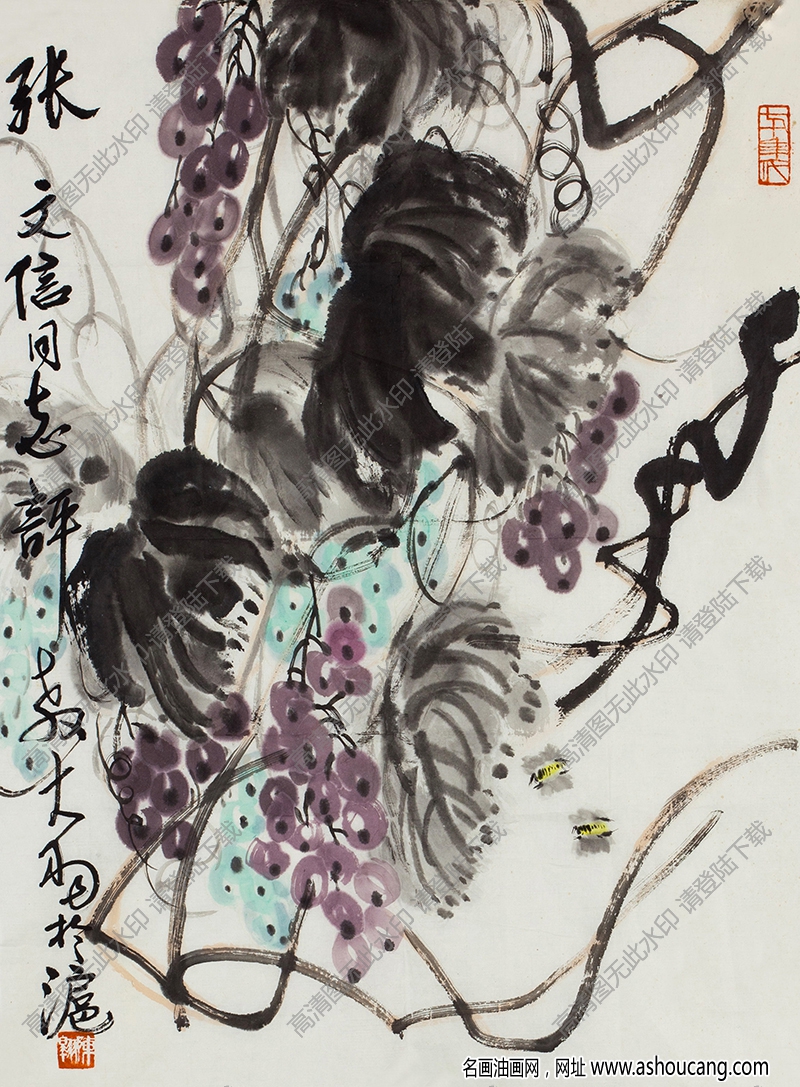 张文信同志評教大羽於滬
高清图无此水印 请登陆下载
名画油画网，网址 www.ashoucang.com